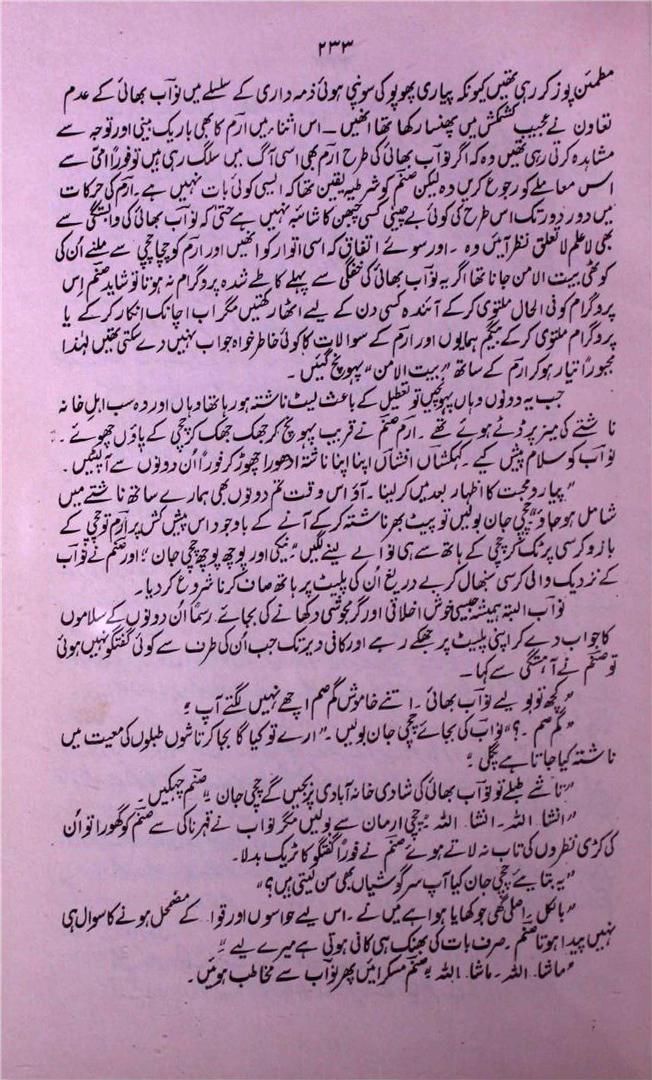 ۲۳۳
مطمئن پوز کر رہی تھیں کیونکہ پیاری پھوپو کی سونپی ہوئی ذمہ داری کے سلسلے میں نوّاب بھائی کے عدم
تعاون نے عجیب کشمکش میں پھنسا رکھا تھا انھیں ۔ اس اثناء میں ارم کا بھی باریک بینی اور توجہ سے
مشاہدہ کرتی رہی تھیں وہ کہ اگر نوّاب بھائی کی طرح ارم بھی اسی آگ میں سلگ رہی ہیں تو فوراً امّی سے
اس معاملے کو رجوع کریں وہ لیکن صنم کو شرطیہ یقین تھا کہ ایسی کوئی بات نہیں ہے ۔ ارم کی حرکات
میں دور دور تک اس طرح کی کوئی بے چینی کسی چبھن کا شائبہ نہیں ہے حتیٰ کہ نوّاب بھائی کی وابستگی سے
بھی لاعلم لاتعلق نظر آئیں وہ ۔ اور سوئے اتفاق کہ اسی اتوار کو انھیں اور ارم کو چچا چچی سے ملنے اُن کی
کوٹھی بیت الامن جانا تھا اگر یہ نوّاب بھائی کی خفگی سے پہلے کا طے شدہ پروگرام نہ ہوتا تو شاید صنم اس
پروگرام کو فی الحال ملتوی کر کے آئندہ کسی دن کے لیے اٹھا رکھتیں مگر اب اچانک انکار کر کے یا
پروگرام ملتوی کر کے بیگم ہمایوں اور ارم کے سوالات کا کوئی خاطر خواہ جواب نہیں دے سکتی تھیں لہٰذا
مجبوراً تیار ہو کر ارم کے ساتھ "بیت الامن" پہونچ گئیں ۔
جب یہ دونوں وہاں پہونچیں تو تعطیل کے باعث لیٹ ناشتہ ہو رہا تھا وہاں اور وہ سب اہل خانہ
ناشتے کی میز پر ڈٹے ہوئے تھے ۔ ارم صنم نے قریب پہونچ کر جھک جھک کر چچی کے پاؤں چھوئے ۔
نوّاب کو سلام پیش کیے ۔ کہکشاں افشاں اپنا اپنا ناشتہ ادھورا چھوڑ کر فوراً اُن دونوں سے آ لپٹیں ۔
"پیار و محبت کا اظہار بعد میں کر لینا ۔ آؤ اس وقت تم دونوں بھی ہمارے ساتھ ناشتے میں
شامل ہو جاؤ" چچی جان بولیں تو پیٹ بھر ناشتہ کر کے آنے کے باوجود اس پیش کش پر ارم تو چچی کے
بازو کرسی پر ٹک کر چچی کے ہاتھ سے ہی نوالے لینے لگیں "نیکی اور پوچھ پوچھ چچی جان" اور صنم نے نوّاب
کے نزدیک والی کرسی سنبھال کر بے دریغ اُن کی پلیٹ پر ہاتھ صاف کرنا شروع کر دیا ۔
نوّاب البتہ ہمیشہ جیسی خوش اخلاقی اور گرمجوشی دکھانے کی بجائے رسماً اُن دونوں کے سلاموں
کا جواب دے کر اپنی پلیٹ پر جھکے رہے اور کافی دیر تک جب اُن کی طرف سے کوئی گفتگو نہیں ہوئی
تو صنم نے آہستگی سے کہا ۔
"کچھ تو بولیے نوّاب بھائی ۔ اتنے خاموش گم صم اچھے نہیں لگتے آپ"
"گم صم ۔ ؟" نوّاب کی بجائے چچی جان بولیں ۔ "ارے تو کیا گا بجا کر تاشوں طبلوں کی معیت میں
ناشتہ کیا جاتا ہے پگلی"
"تاشے طبلے تو نوّاب بھائی کی شادی خانہ آبادی پر بجیں گے چچی جان" صنم چہکیں ۔
"انشا اللہ ۔ انشا اللہ" چچی ارمان سے بولیں مگر نوّاب نے قہر ناکی سے صنم کو گھورا تو اُن
کی کڑی نظروں کی تاب نہ لاتے ہوئے صنم نے فوراً گفتگو کا ٹریک بدلا ۔
"یہ بتایئے چچی جان کیا آپ سرگوشیاں بھی سن لیتی ہیں ؟"
"بالکل ۔ اصلی گھی جو کھایا ہوا ہے میں نے ۔ اس لیے حواسوں اور قواء کے مضمحل ہونے کا سوال ہی
نہیں پیدا ہوتا صنم ۔ صرف بات کی بھنک ہی کافی ہوتی ہے میرے لیے"
"ماشا اللہ ۔ ماشا اللہ" صنم مسکرائیں پھر نوّاب سے مخاطب ہوئیں ۔